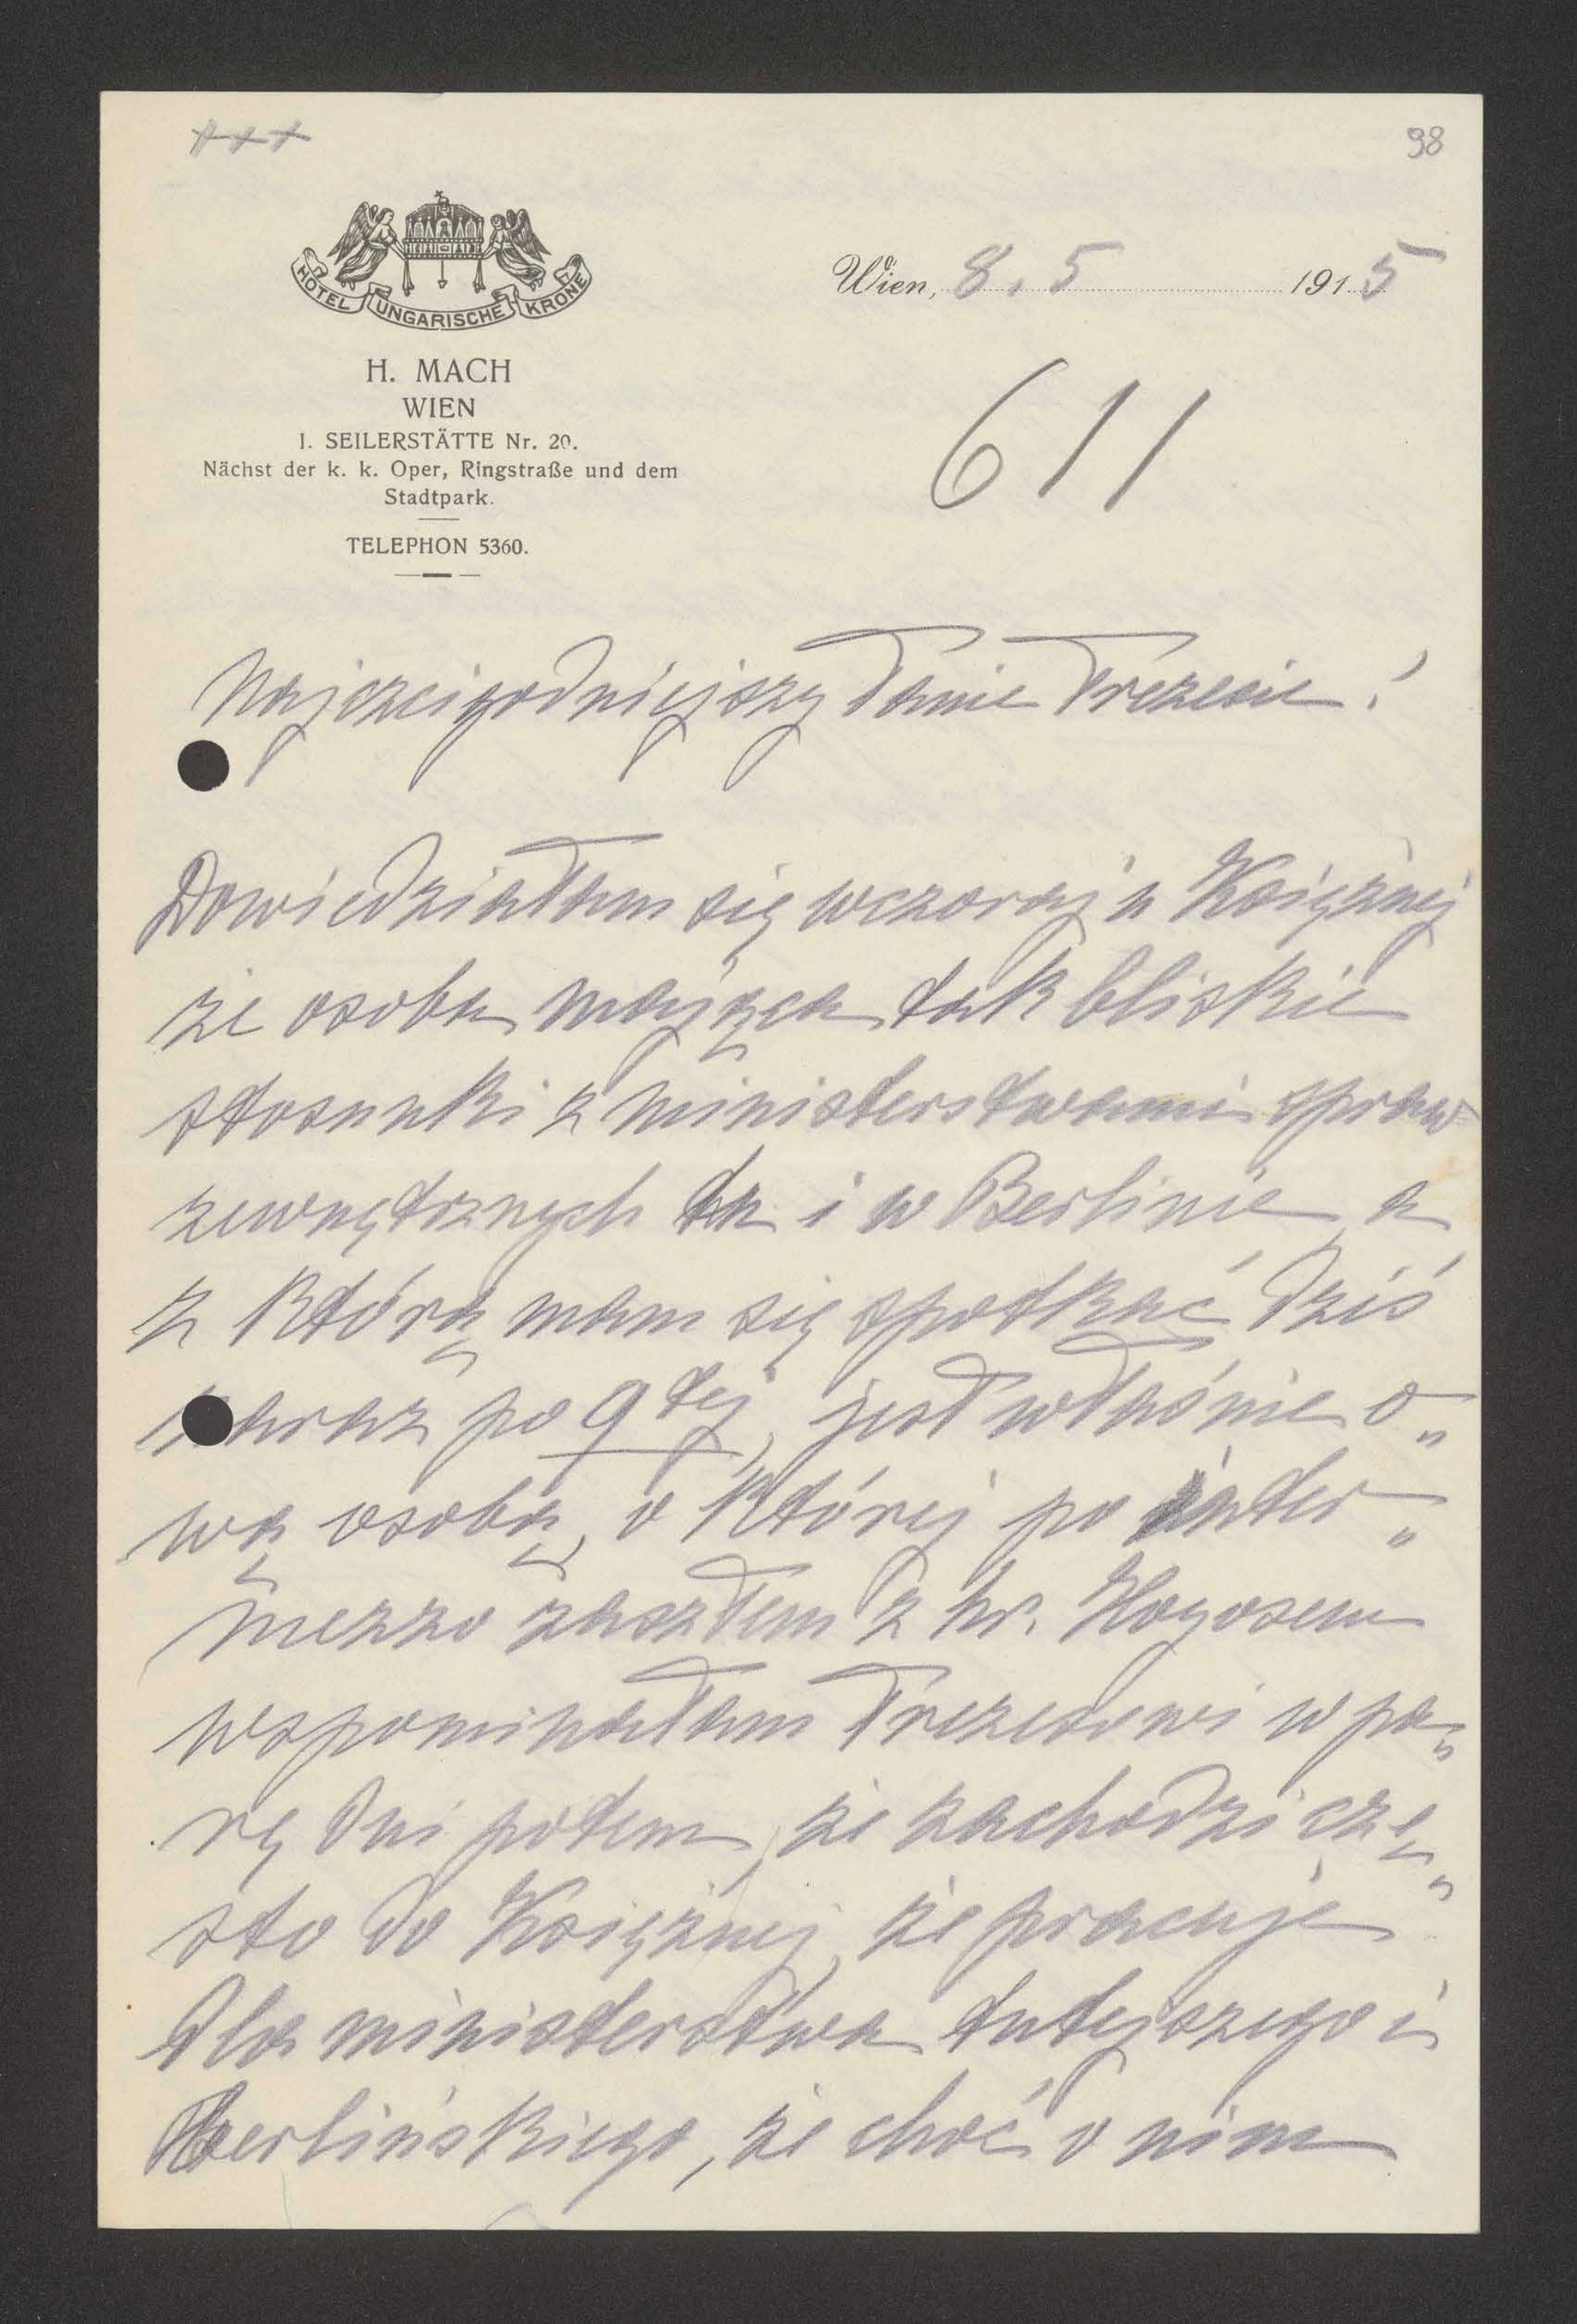 +++
98
HOTEL UNGARISCHE KRONE
H. MACH
WIEN
I. SEILERSTÄTTE Nr. 20.
Nächst der k. k. Oper, Ringstraße und dem
Stadtpark.
TELEPHON 5360.
Wien, 8. 5 1915
611
Najczcigodniejszy Panie Prezesie!
Dowiedziałam się wczoraj u Księżnej
że osoba mająca tak bliskie
stosunki z ministerstwami spraw
zewnętrznych tu i w Berlinie, a
z którą mam się spotkać dziś
zaraz po 9tej, jest właśnie o„
wą osobą, o której po inter„
mezzo zaszłem z hr. Hoyosem
wspominałam Prezesowi w pa„
rę dni potem, że zachodzi czę„
sto do Księżnej, że pracuje
dla ministerstwa tutejszego i
berlińskiego, że choć o nim